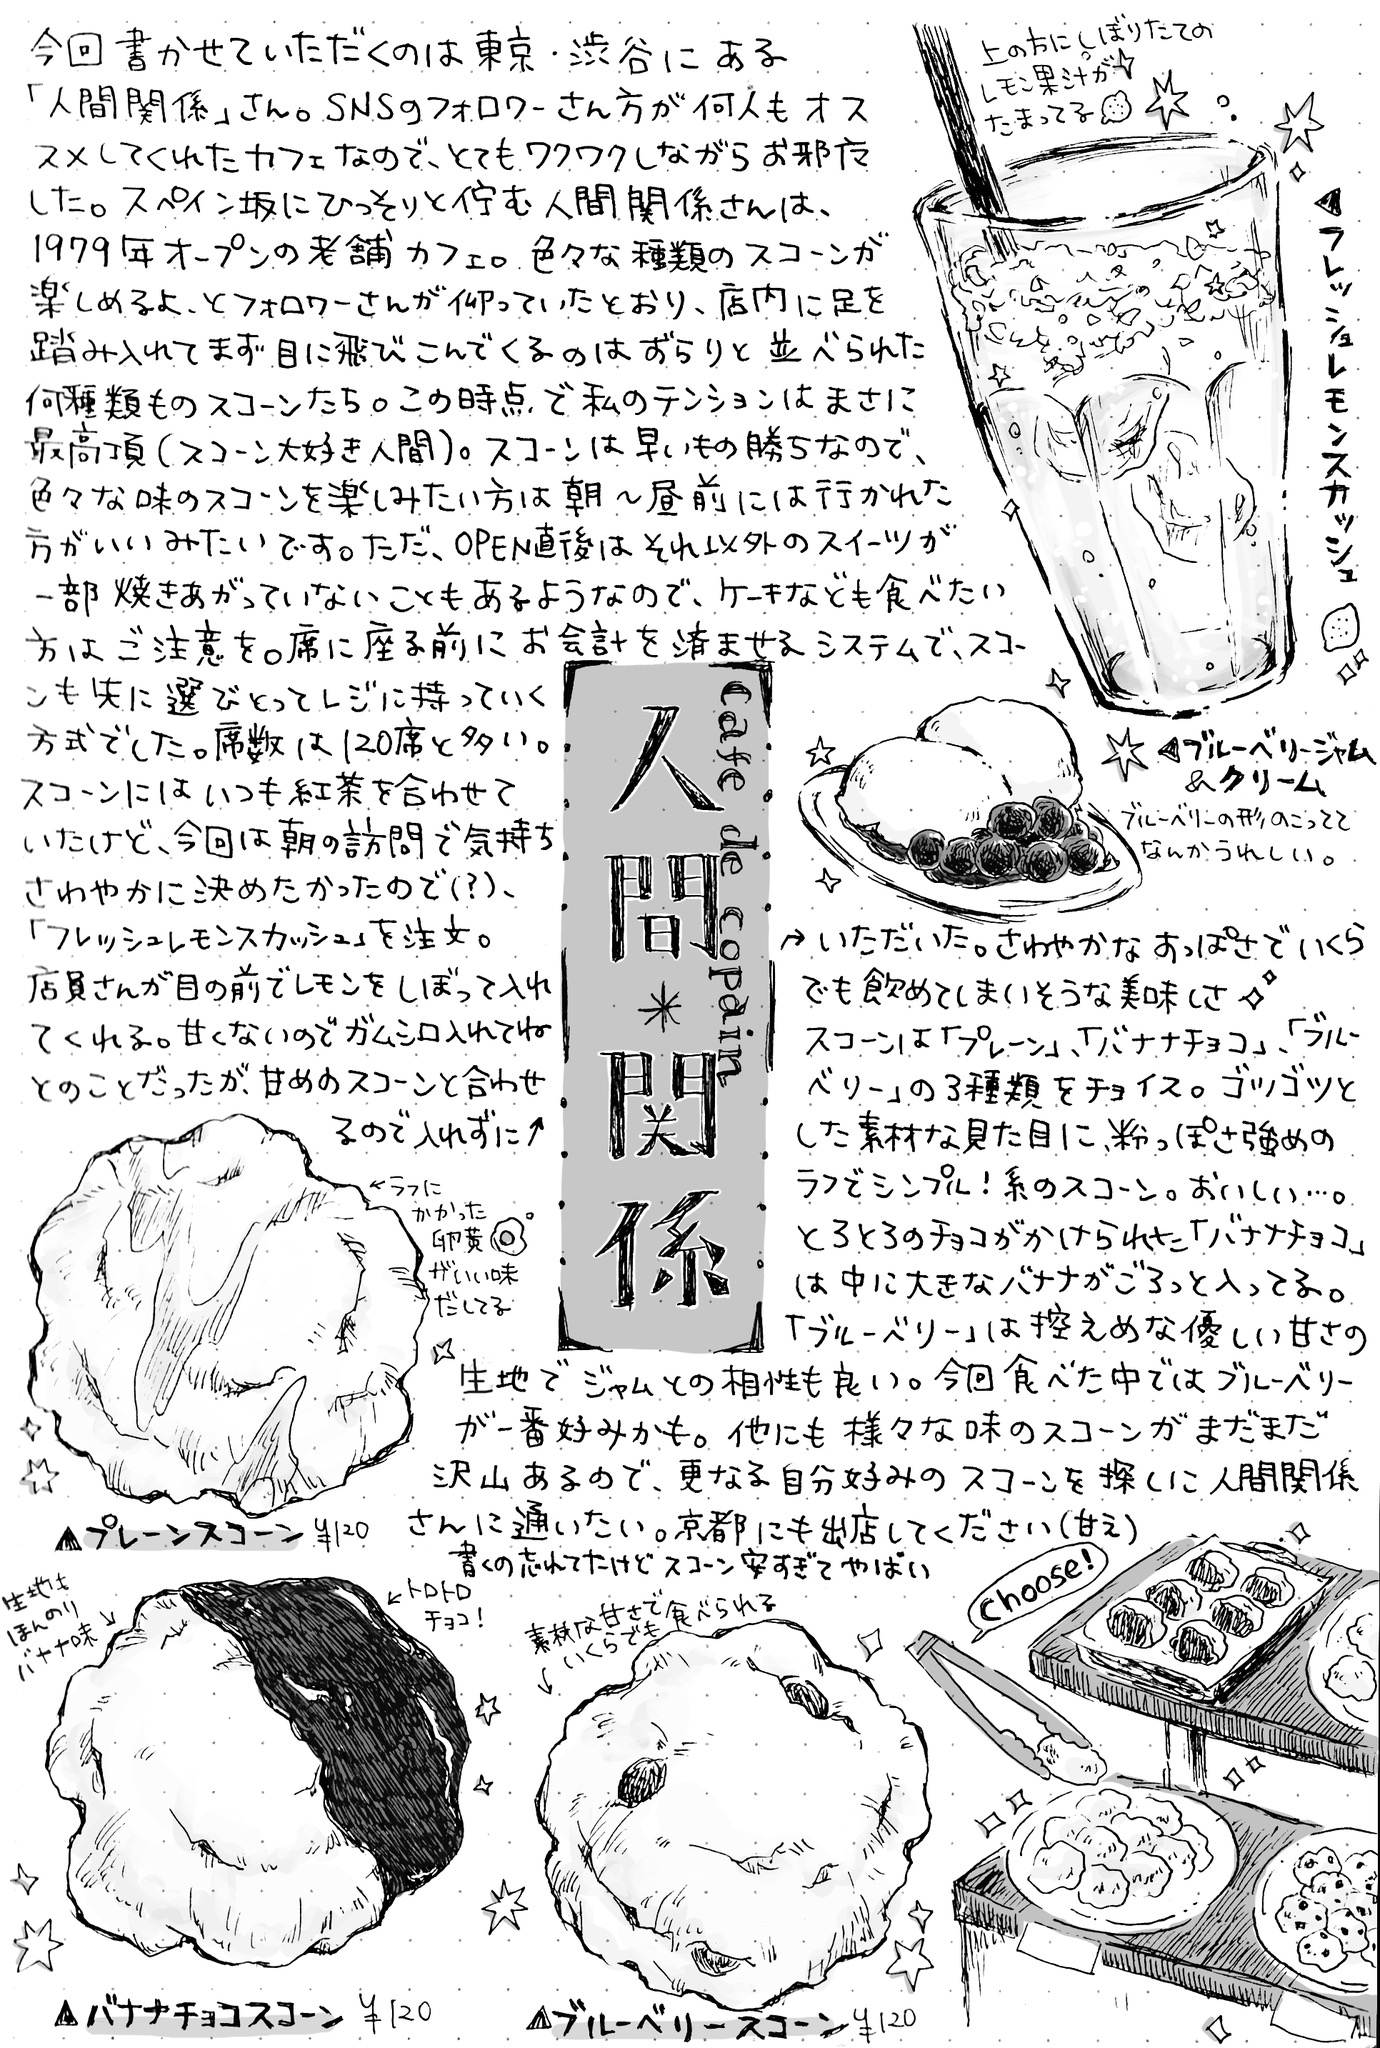 今回書かせていただくのは東京・渋谷にある
「人間関係」さん。SNSのフォロワーさん方が何人もオス
スメしてくれたカフェなので、とてもワクワクしながらお邪魔
した。スペイン坂にひっそりと佇む人間関係さんは、
1979年オープンの老舗カフェ。色々な種類のスコーンが
楽しめるよ、とフォロワーさんが仰っていたとおり、店内に足を
踏み入れてまず目に飛びこんでくるのはずらりと並べられた
何種類ものスコーンたち。この時点で私のテンションはまさに
最高頂(スコーン大好き人間)。スコーンは早いもの勝ちなので、
色々な味のスコーンを楽しみたい方は朝〜昼前には行かれた
方がいいみたいです。ただ、OPEN直後はそれ以外のスイーツが
一部焼きあがっていないこともあるようなので、ケーキなども食べたい
方はご注意を。席に座る前にお会計を済ませるシステムで、スコー
ンも先に選びとってレジに持っていく
方式でした。席数は120席と多い。
スコーンにはいつも紅茶を合わせて
いたけど、今回は朝の訪問で気持ち
さわやかに決めたかったので(?)、
「フレッシュレモンスカッシュ」を注文。
店員さんが目の前でレモンをしぼって入れ
てくれる。甘くないのでガムシロ入れてね
とのことだったが、甘めのスコーンと合わせ
るので入れずに↑
→いただいた。さわやかなすっぱさでいくら
でも飲めてしまいそうな美味しさ
スコーンは「プレーン」、「バナナチョコ」、「ブルー
ベリー」の3種類をチョイス。ゴツゴツと
した素材な見た目に、粉っぽさ強めの
ラフでシンプル!系のスコーン。おいしい…。
とろとろのチョコがかけられた「バナナチョコ」
は中に大きなバナナがごろっと入ってる。
「ブルーベリー」は控えめな優しい甘さの
生地でジャムとの相性も良い。今回食べた中ではブルーベリー
が一番好みかも。他にも様々な味のスコーンがまだまだ
沢山あるので、更なる自分好みのスコーンを探しに人間関係
さんに通いたい。京都にも出店してください(甘え)
書くの忘れてたけどスコーン安すぎてやばい
上の方にしぼりたての
レモン果汁が
たまってる
▲フレッシュレモンスカッシュ
▲ブルーベリージャム
&クリーム
ブルーベリーの形のこってて
なんかうれしい。
cafe de copain
人間*関係
←ラフに
かかった
卵黄
がいい味
だしてる
▲プレーンスコーン ¥120
生地は
ほんのり
バナナ味
←トロトロ
チョコ!
▲バナナチョコスコーン ¥120
素材な甘さで食べられる
いくらでも
▲ブルーベリースコーン ¥120
choose!